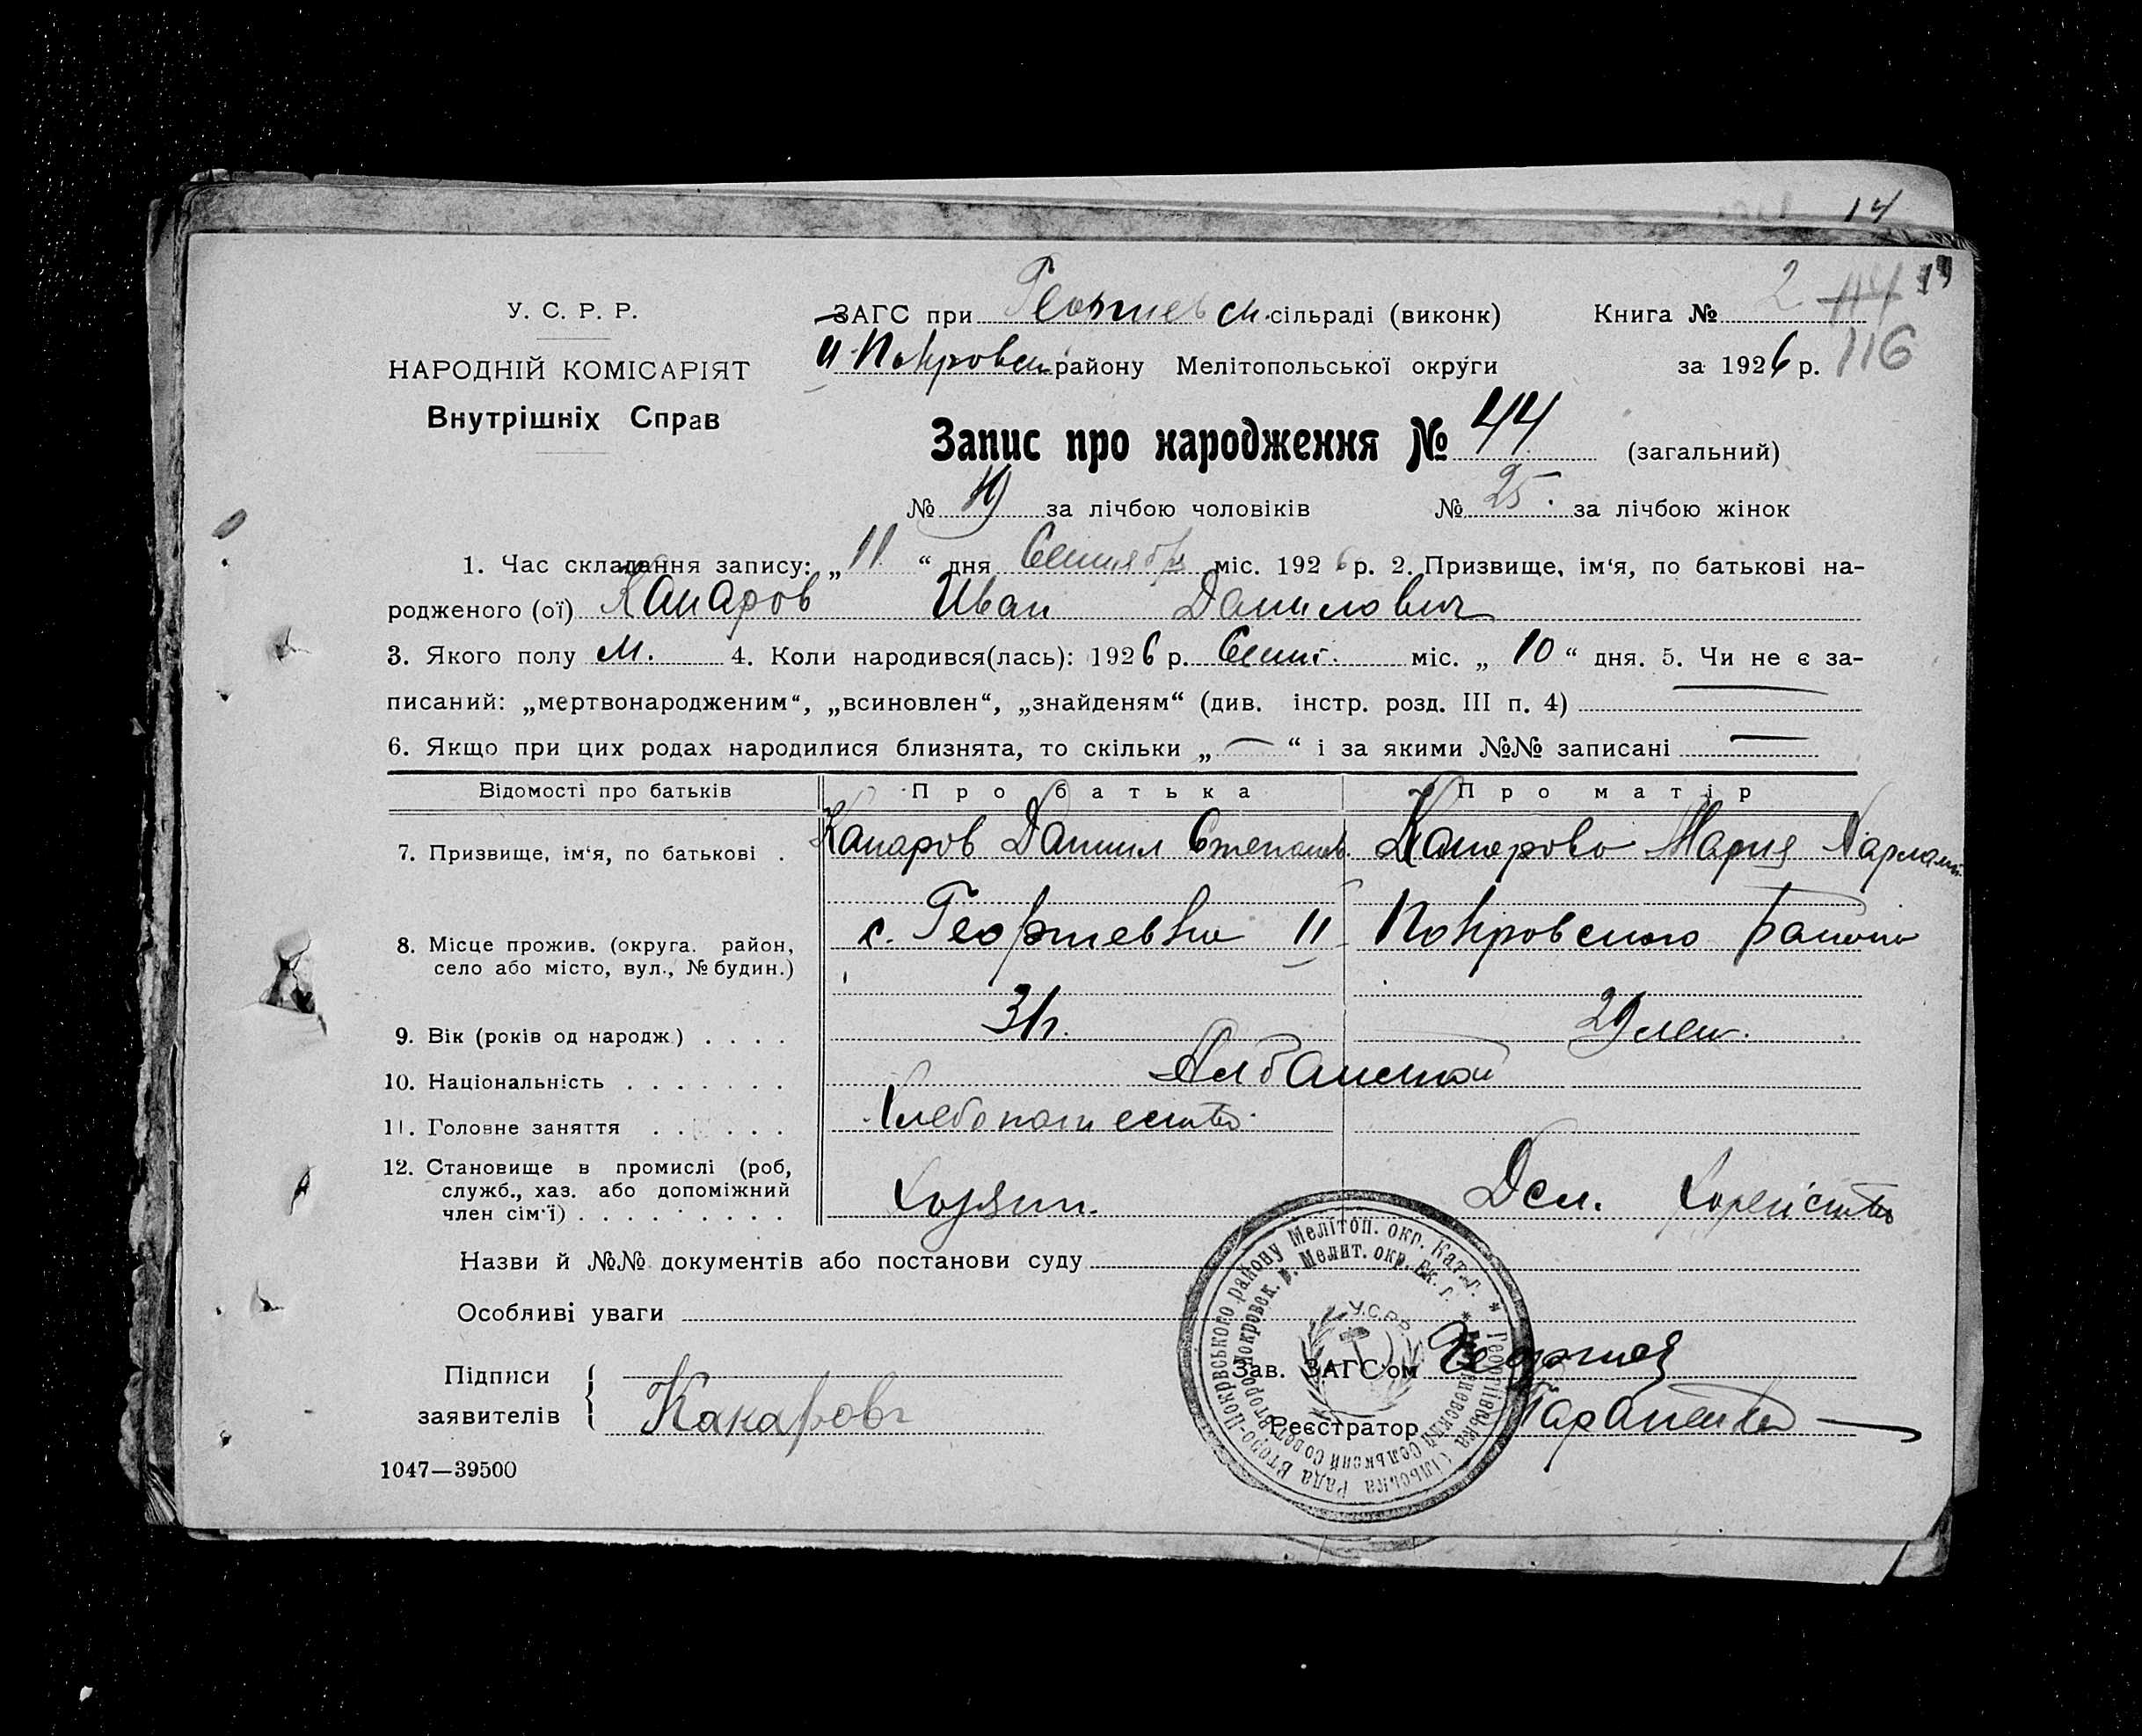 14
У. С. Р. Р.
НАРОДНІЙ КОМІСАРІЯТ
Внутрішніх Справ
ЗАГС при Георгиевск. сільраді (виконк)
II Покровск району Мелітопольської округи
Книга № 2 114 19
за 1926 р. 116
Запис про народження № 44 (загальний)
№ 19 за лічбою чоловіків № 25 за лічбою жінок
1. Час складання запису: „11“ дня Сентября міс. 1926 р. 2. Призвище, ім‘я, по батькові на-
родженого (ої) Канаров Иван Данилович
3. Якого полу м. 4. Коли народився(лась): 1926 р. Сент. міс. „10“ дня. 5. Чи не є за-
писаний: „мертвонародженим“, „всиновлен“, „знайденям“ (див. інстр. розд. III п. 4) —
6. Якщо при цих родах народилися близнята, то скільки „—“ і за якими №№ записані —
Відомості про батьків Про батька Про матір
7. Призвище, ім‘я, по батькові . Канаров Данил Степанов. Канарова Мария Харламп.
8. Місце прожив. (округа. район, село або місто, вул., № будин.) с. Георгиевка II Покровского района
9. Вік (років од народж.) . . . . 31 г. 29 лет.
10. Національність . . . . . . . Албанской
11. Головне заняття . . . . . . Хлебопашество
12. Становище в промислі (роб, служб., хаз. або допоміжний член сім‘ї) . . . . . . . . . Хозяин. Дом. Хозяйство
Назви й №№ документів або постанови суду
Особливі уваги
Підписи
заявителів
Канаровъ
Зав. ЗАГС‘ом
Реєстратор
Георгіївська Сільська Рада Второ-Покрвського району Мелітоп. окр. Кат. г.
Георгиевский Сельский Совет Второпокровск. р. Мелит. окр. Ек. г.
У.С.Р.Р.
1047—39500